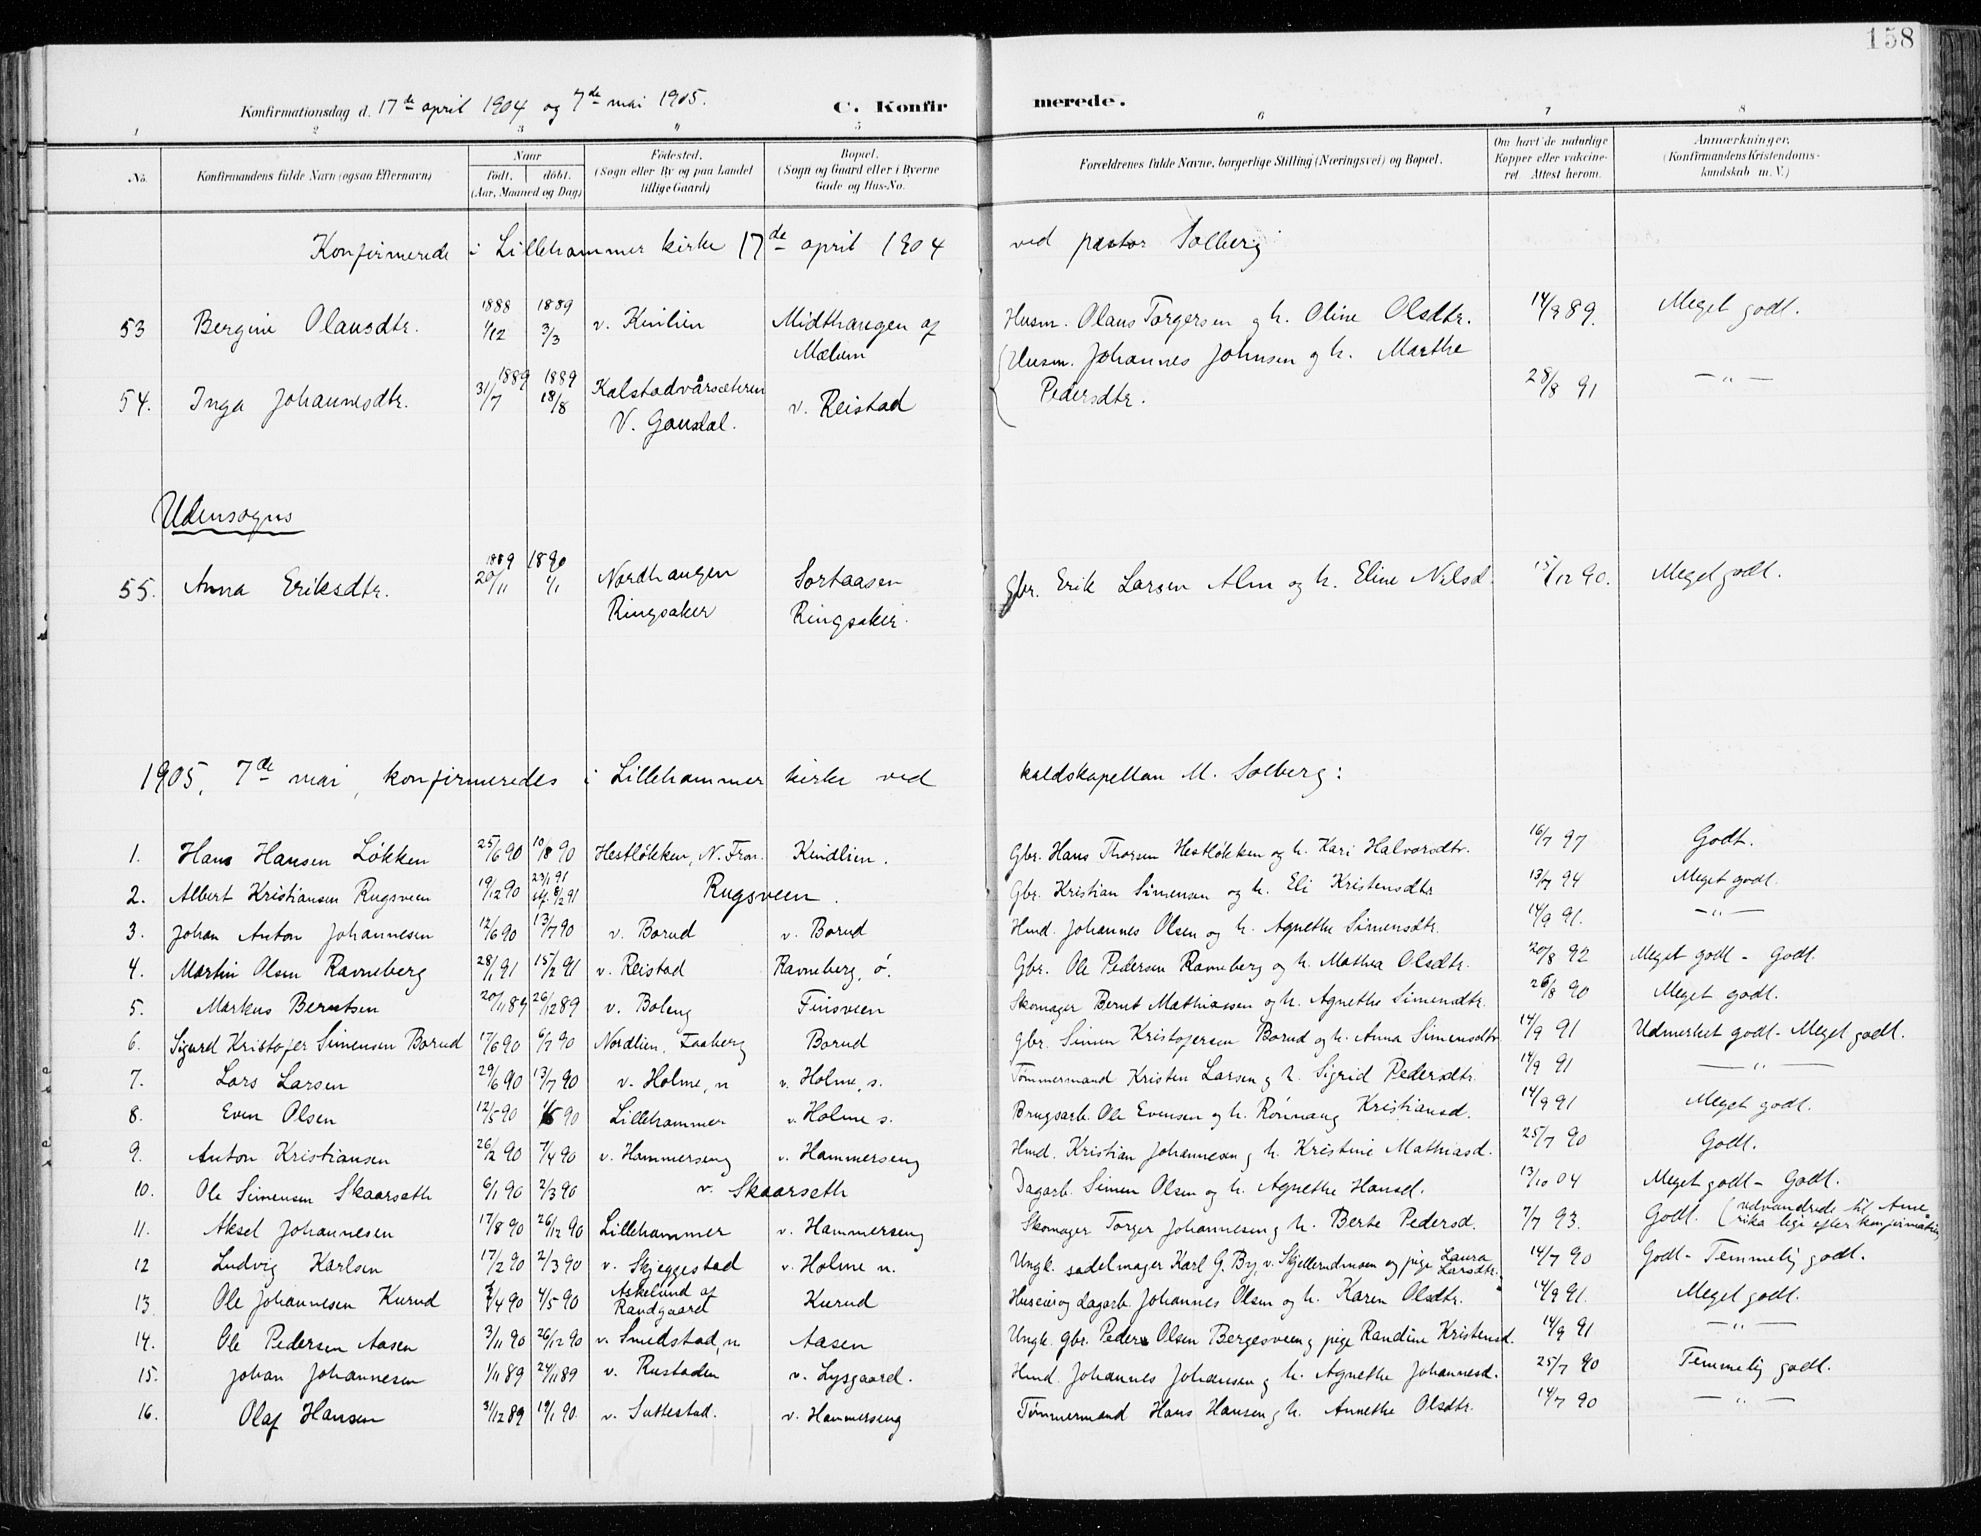 158
Konfirmationsdag d. 17de april 1904 og 7de mai 1905. C. Konfir merede.
1 2 3 4 5 6 7 8
No. Konfirmandens fulde Navn (ogsaa Efternavn) Naar født. døbt. (Aar, Maaned og Dag) Fødested. (Sogn eller By og paa Landet tillige Gaard) Bopæl. (Sogn og Gaard eller i Byerne Gade og Hus-No. Forældrenes fulde Navne, borgerlige Stilling (Næringsvei) og Bopæl. Om havt de naturlige Kopper eller vakcineret. Attest herom. Anmærkninger. (Konfirmandens Kristendomskundskab m. V.)
Konfirmerede i Lillehammer kirke 17de april 1904 ved pastor Solberg
53 Bergine Olausdtr. 1888 1/12 1889 3/3 v. Kinlien Midthaugen af Mælum Husm. Olaus Torgersen og h. Oline Olsdtr. 14/9 89. Meget godt.
54. Inga Johannesdtr. 1889 31/7 1889 18/8 Kalstadvårsæteren V. Gausdal. v. Reistad Husm. Johannes Johnsen og h. Marthe Pedersdtr. 28/8 91 — " —
Udensogns
55. Anna Eriksdtr. 1889 20/11 1890 1/1 Nordhaugen Ringsaker Sortaasen Ringsaker. Gbr. Erik Larsen Alm og h. Eline Nilsd. 15/12 90. Meget godt.
1905, 7de mai, konfirmeredes i Lillehammer kirke ved kaldskapellan M. Solberg:
1. Hans Hansen Løkken 25/6 90 10/8 90 Hestløkken, N. Fron. Kindlien. Gbr. Hans Thorsen Hestløkken og h. Kari Halvorsdtr. 16/7 97 Godt.
2. Albert Kristiansen Rugsveen 19/12 90 23/1 91 8/2 91 Rugsveen. Gbr. Kristian Simensen og h. Eli Kristensdtr 13/7 94 Meget godt.
3. Johan Anton Johannesen 12/6 90 13/7 90 v. Borud v. Borud Hmd. Johannes Olsen og h. Agnethe Simensdtr. 14/9 91. — " —
4. Martin Olsen Ravneberg 28/1 91 15/2 91 v. Reistad Ravneberg, ø. Gbr. Ole Pedersen Ravneberg og h. Mathea Olsdtr. 20/8 92 Meget godt - Godt.
5. Markus Berntsen 20/11 89 26/12 89 v. Boleng Finsveen Skomager Bernt Mathiassen og h. Agnethe Simensdtr. 26/8 90 Meget godt.
6. Sigurd Kristofer Simensen Borud 17/6 90 6/7 90 Nordlien, Faaberg Borud Gbr. Simen Kristofersen Borud og h. Anna Simensdtr 14/9 91 Udmerket godt - Meget godt.
7. Lars Larsen 29/6 90 13/7 90 v. Holme, n v. Holme, s. Tømmermand Kristen Larsen og h. Sigrid Pedersdtr. 14/9 91 — " —
8. Even Olsen 12/5 90 1/6 90 Lillehammer v. Holme s. Brugsarb. Ole Evensen og h. Rønnaug Kristiansd. 14/9 91 Meget godt.
9. Anton Kristiansen 26/2 90 7/4 90 v. Hammerseng v. Hammerseng Hmd. Kristian Johannesen og h. Kristine Mathiasd. 25/7 90 Godt.
10. Ole Simensen Skaarseth 6/1 90 2/3 90 v. Skaarseth Dagarb. Simen Olsen og h. Agnethe Hansd. 13/10 04 Meget godt - Godt.
11. Aksel Johannesen 17/8 90 26/12 90 Lillehammer v. Hammerseng Skomager Torger Johannesen og h. Berte Pedersd. 7/7 93. Godt. (udvandrede til Amerika lige efter konfirmation
12 Ludvig Karlsen 17/2 90 2/3 90 v. Skjeggestad v. Holme n. Ungk. sadelmager Karl G. By, v. Skjellerudmoen og pige Laura Larsdtr. 14/7 90 Godt - Temmelig godt.
13. Ole Johannesen Kurud /4 90 4/5 90 Askelund af Randgaard Kurud Huseier og dagarb. Johannes Olsen og h. Karen Olsdtr. 14/9 91. Meget godt.
14. Ole Pedersen Aasen 3/11 90 26/12 90 v. Smedstad, n Aasen Ungk. gbr. Peder Olsen Bergesveen og pige Randine Kristensd. 14/9 91 — " —
15. Johan Johannesen 1/11 89 24/11 89 v. Rustaden v. Lysgaard. Hmd. Johannes Johansen og h. Agnethe Johannesd. 25/7 90 Temmelig godt.
16. Olaf Hansen 31/12 89 19/1 90. v. Suttestad. v. Hammerseng Tømmermand Hans Hansen og h. Annethe Olsdtr. 14/7 90 — " —